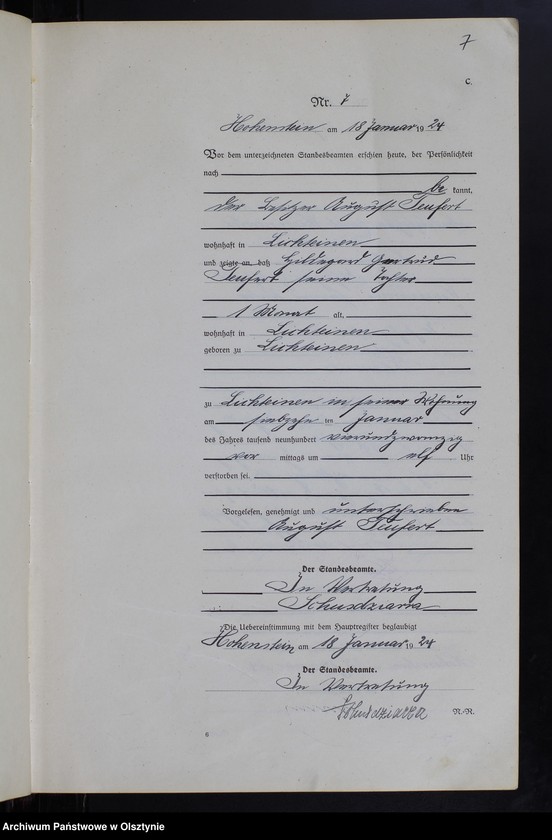 7
C.
Nr. 7
Hohenstein am 18 Januar 1924
Vor dem unterzeichneten Standesbeamten erschien heute, der Persönlichkeit
nach
be kannt,
der Besitzer August Teufert
wohnhaft in Lichteinen
und zeigte an, daß Hildegard Gertrud
Teufert seine Tochter
1 Monat alt,
wohnhaft in Lichteinen
geboren zu Lichteinen
zu Lichteinen in seiner Wohnung
am siebzehn ten Januar
des Jahres tausend neunhundert vierundzwanzig
vor mittags um elf Uhr
verstorben sei.
Vorgelesen, genehmigt und unterschrieben
August Teufert
Der Standesbeamte.
In Vertretung
Die Uebereinstimmung mit dem Hauptregister beglaubigt
Hohenstein am 18 Januar 1924
Der Standesbeamte.
In Vertretung
N.-R.
6
Archiwum Państwowe w Olsztynie